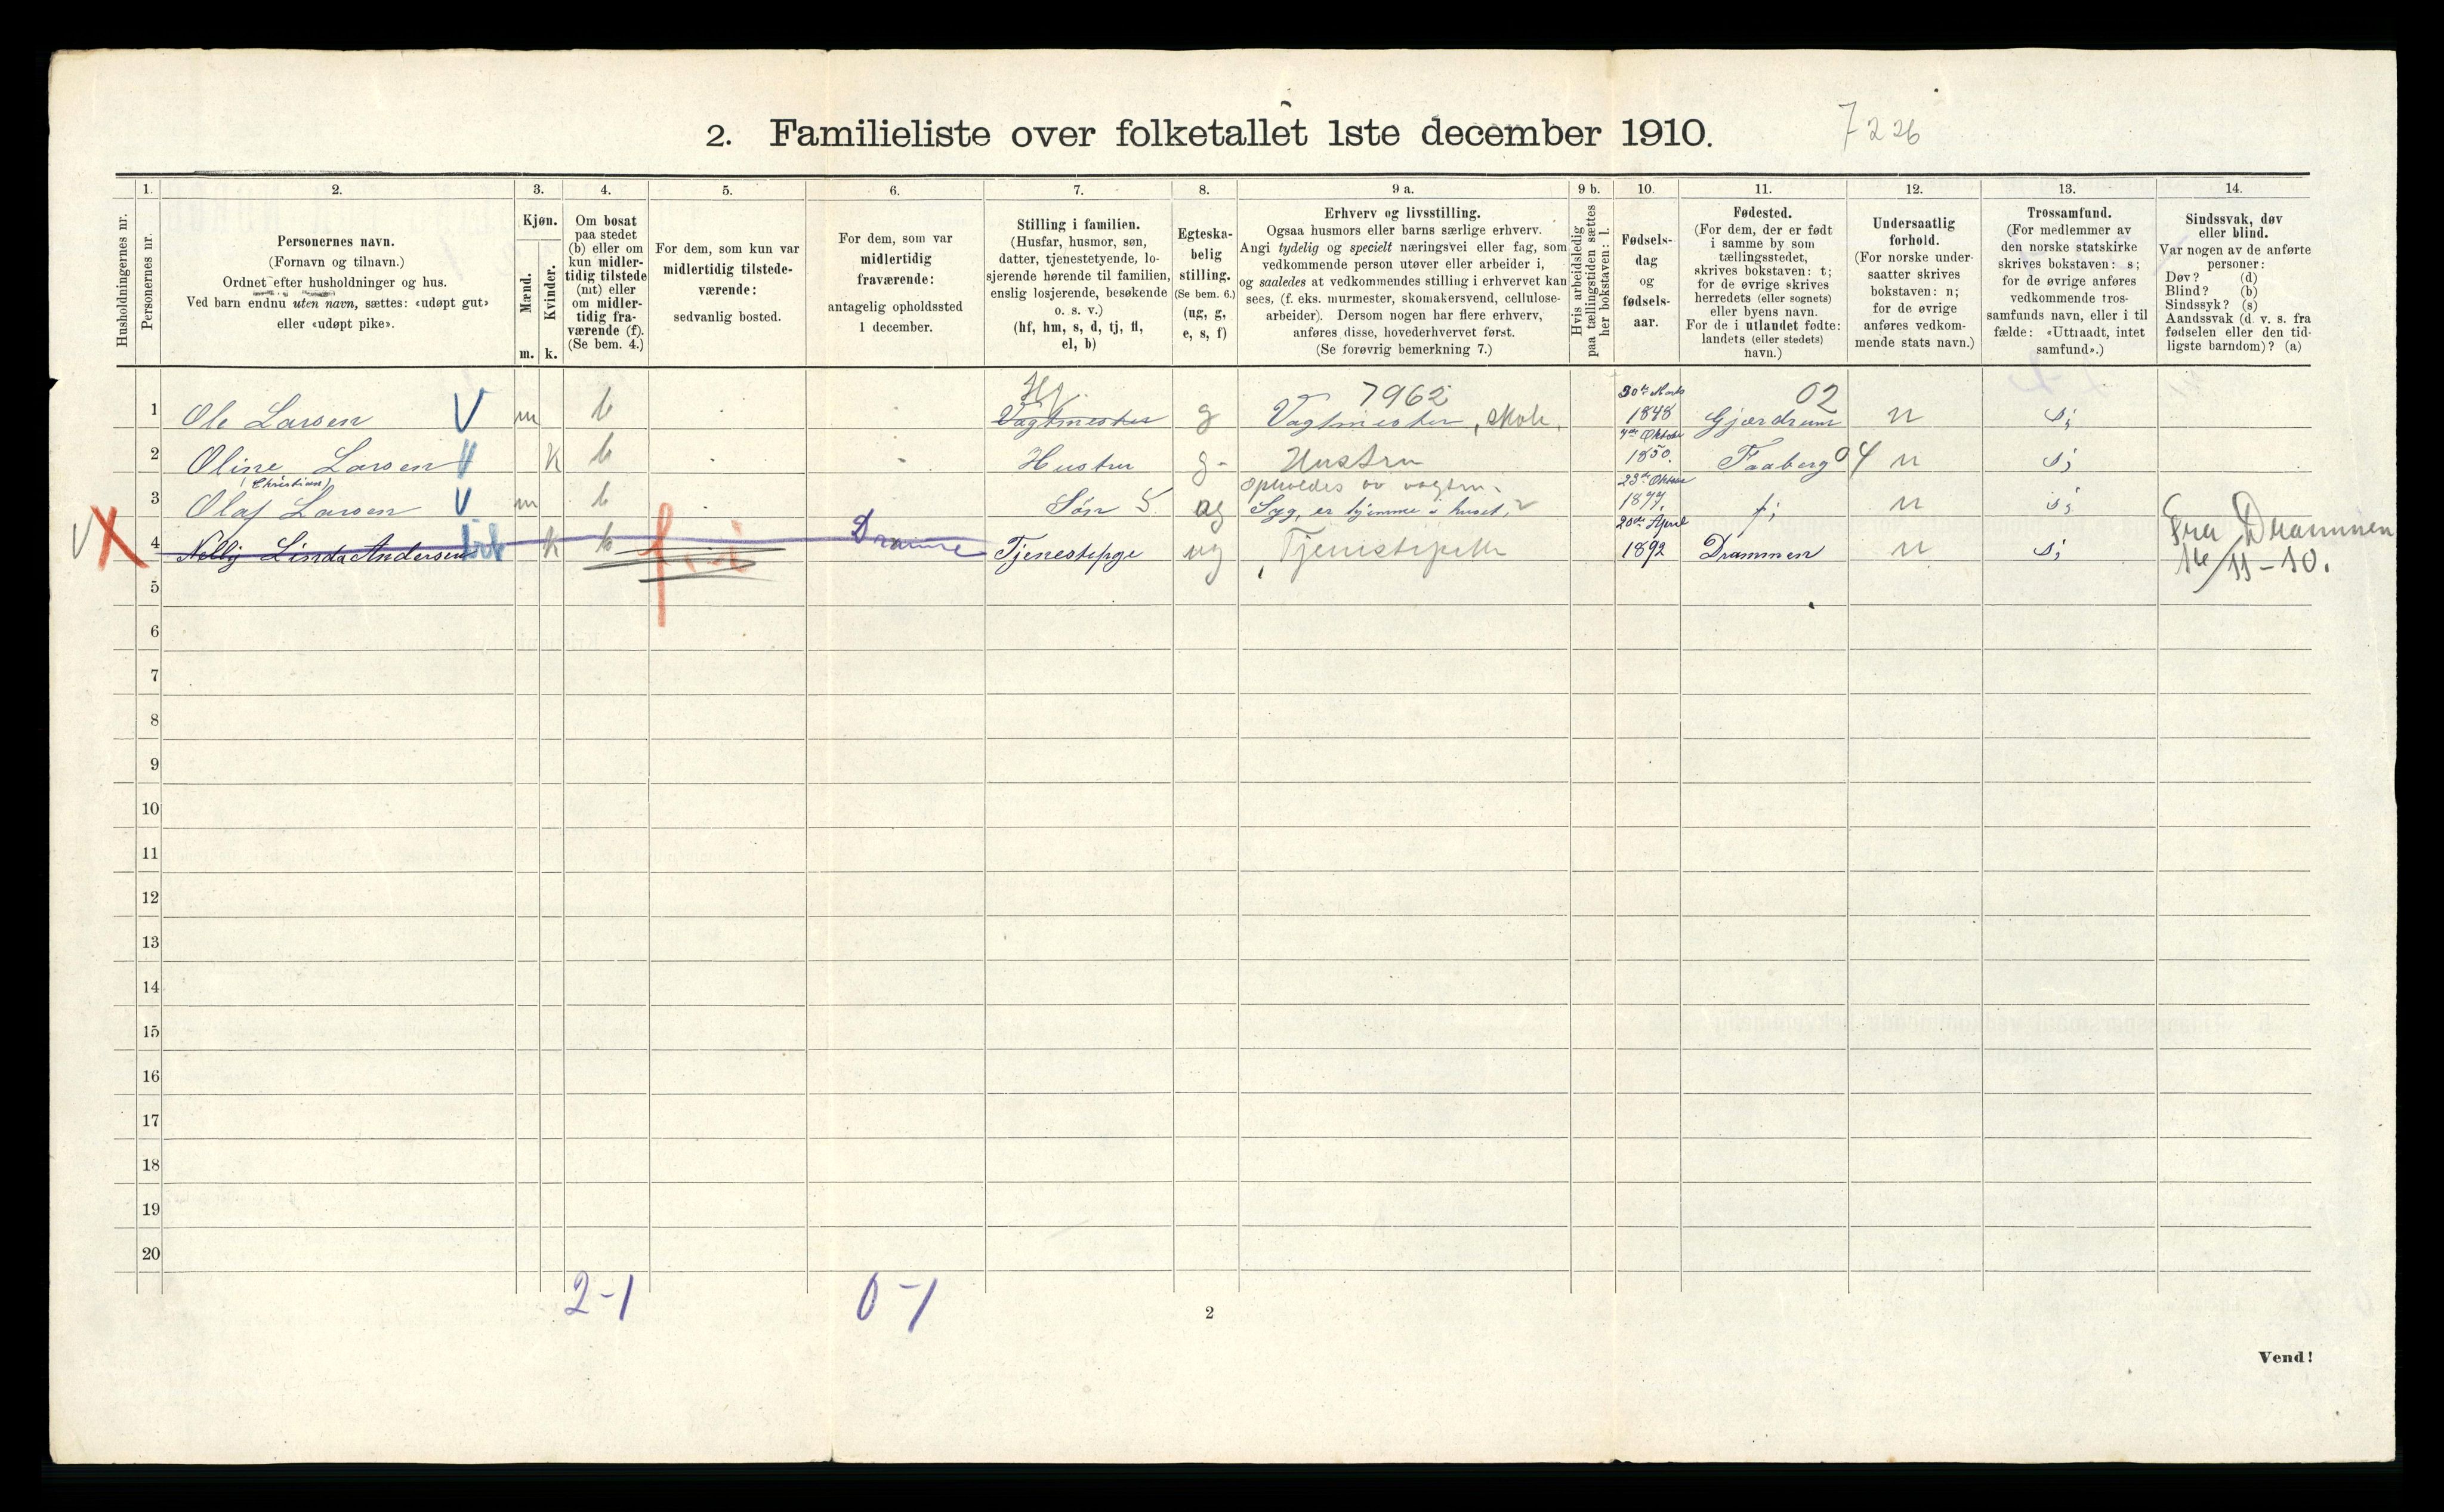 2. Familieliste over folketallet 1ste december 1910.
7226
Husholdningernes nr.
1.
Personernes nr.
2.
Personernes navn.
(Fornavn og tilnavn.)
Ordnet efter husholdninger og hus.
Ved barn endnu uten navn, sættes: «udøpt gut»
eller «udøpt pike».
3.
Kjøn.
Mænd.
Kvinder.
m. k.
4.
Om bosat
paa stedet
(b) eller om
kun midler-
tidig tilstede
(mt) eller
om midler-
tidig fra-
værende (f).
(Se bem. 4.)
5.
For dem, som kun var
midlertidig tilstede-
værende:
sedvanlig bosted.
6.
For dem, som var
midlertidig
fraværende:
antagelig opholdssted
1 december.
7.
Stilling i familien.
(Husfar, husmor, søn,
datter, tjenestetyende, lo-
sjerende hørende til familien,
enslig losjerende, besøkende
o. s. v.)
(hf, hm, s, d, tj, fl,
el, b)
8.
Egteska-
belig
stilling.
(Se bem. 6.)
(ug, g,
e, s, f)
9 a.
Erhverv og livsstilling.
Ogsaa husmors eller barns særlige erhverv.
Angi tydelig og specielt næringsvei eller fag, som
vedkommende person utøver eller arbeider i,
og saaledes at vedkommendes stilling i erhvervet kan
sees, (f. eks. murmester, skomakersvend, cellulose-
arbeider). Dersom nogen har flere erhverv,
anføres disse, hovederhvervet først.
(Se forøvrig bemerkning 7.)
9 b.
Hvis arbeidsledig
paa tællingstiden sættes
her bokstaven: l.
10.
Fødsels-
dag
og
fødsels-
aar.
11.
Fødested.
(For dem, der er født
i samme by som
tællingsstedet,
skrives bokstaven: t;
for de øvrige skrives
herredets (eller sognets)
eller byens navn.
For de i utlandet fødte:
landets (eller stedets)
navn.)
12.
Undersaatlig
forhold.
(For norske under-
saatter skrives
bokstaven: n;
for de øvrige
anføres vedkom-
mende stats navn.)
13.
Trossamfund.
(For medlemmer av
den norske statskirke
skrives bokstaven: s;
for de øvrige anføres
vedkommende tros-
samfunds navn, eller i til
fælde: «Uttraadt, intet
samfund».)
14.
Sindssvak, døv
eller blind.
Var nogen av de anførte
personer:
Døv? (d)
Blind? (b)
Sindssyk? (s)
Aandssvak (d. v. s. fra
fødselen eller den tid-
ligste barndom)? (a)
Hf 7962 30te Marts 02
1 Ole Larsen V m b Vagtmester g Vagtmester, skole. 1848 Gjærdrum n s;
4de Oktober
2 Oline Larsen V k b Hustru g- Hustru 1850. Faaberg 04 n s;
(Christian) 23de Oktober
3 Olaf Larsen V m b Søn S ug Syg, er hjemme i huset, 1877. t; n s;
20de April
V X 4 Nelly Linda Andersen k b Tjenestepge ug Tjenestepike 1892 Drammen n s; Fra Drammen
16/11-10.
5
6
7
8
9
10
11
12
13
14
15
16
17
18
19
20
2-1 0-1
2
Vend!